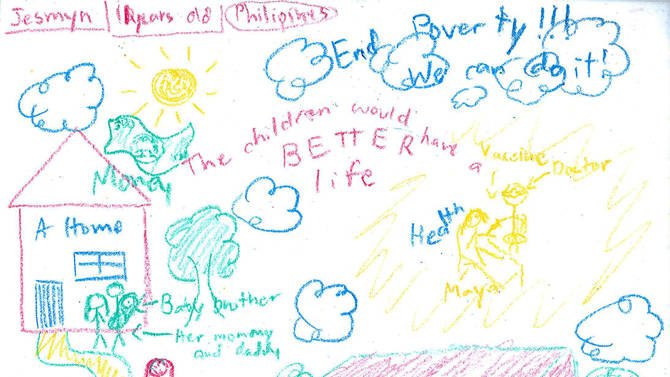 Jesmyn
years old
Philippines
End Poverty!!!
We can do it!
The children would have a
BETTER
life
Money
Vaccine
Doctor
Health
Maya
A Home
Baby brother
Her mommy
and daddy